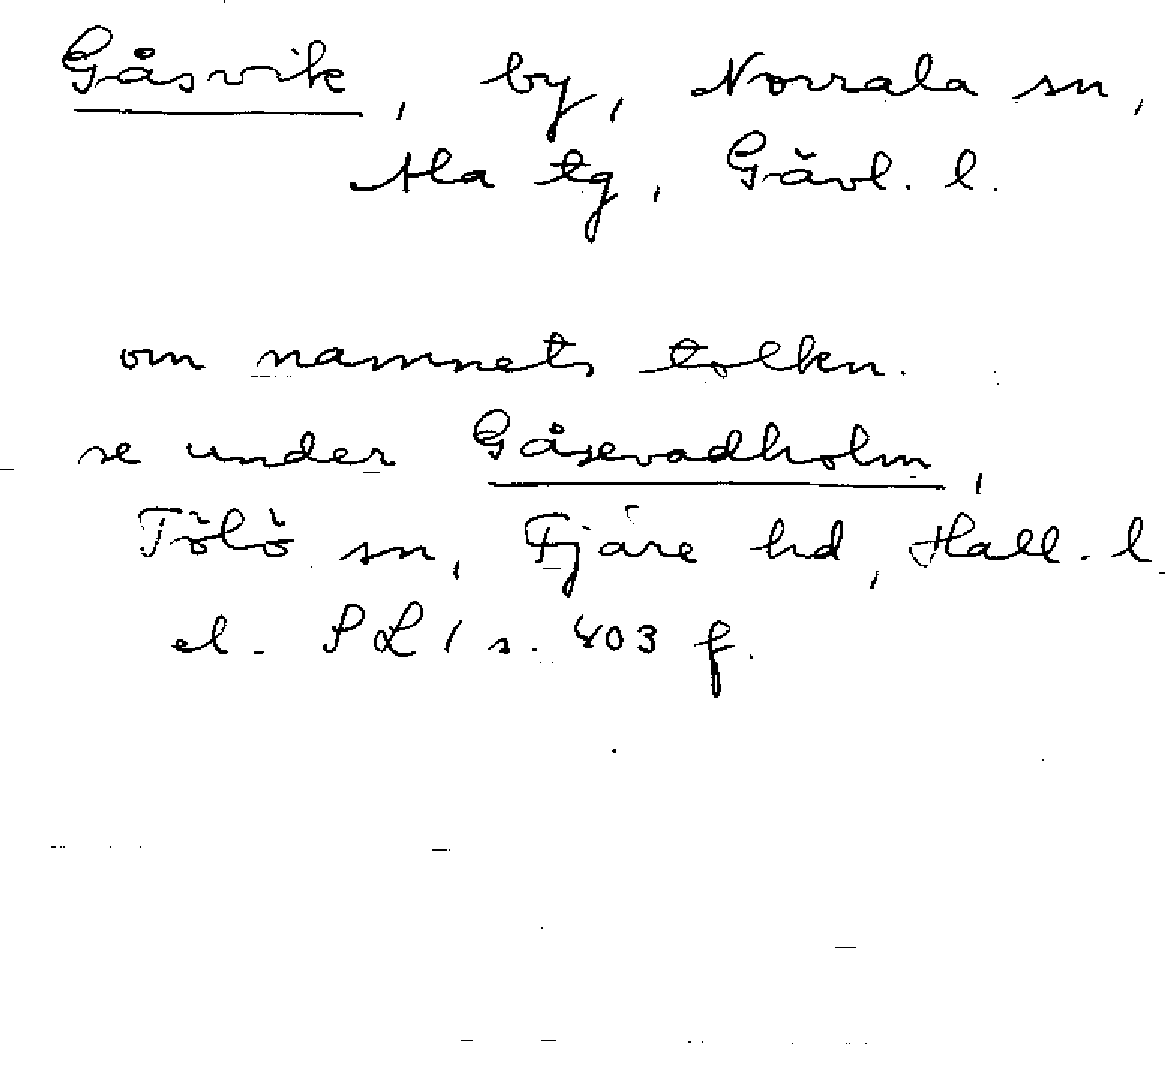 Gåsvik, by, Norrala sn,
Ala tg, Gävl. l.
om namnets tolkn.
se under Gåsevadholm,
Tölö sn, Fjäre hd, Hall. l.
el. PL 1 s. 403 f.